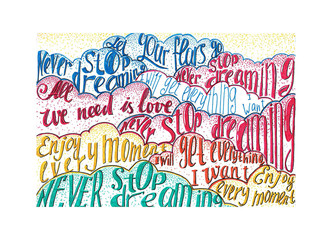 Let Your fears go
NEVER STOP dreaming
never STOP dreaming
All we need is love
I will get everything I want
never STOP dreaming
Enjoy every moment
I will get everything I want
Enjoy every moment
NEVER STOP dreaming